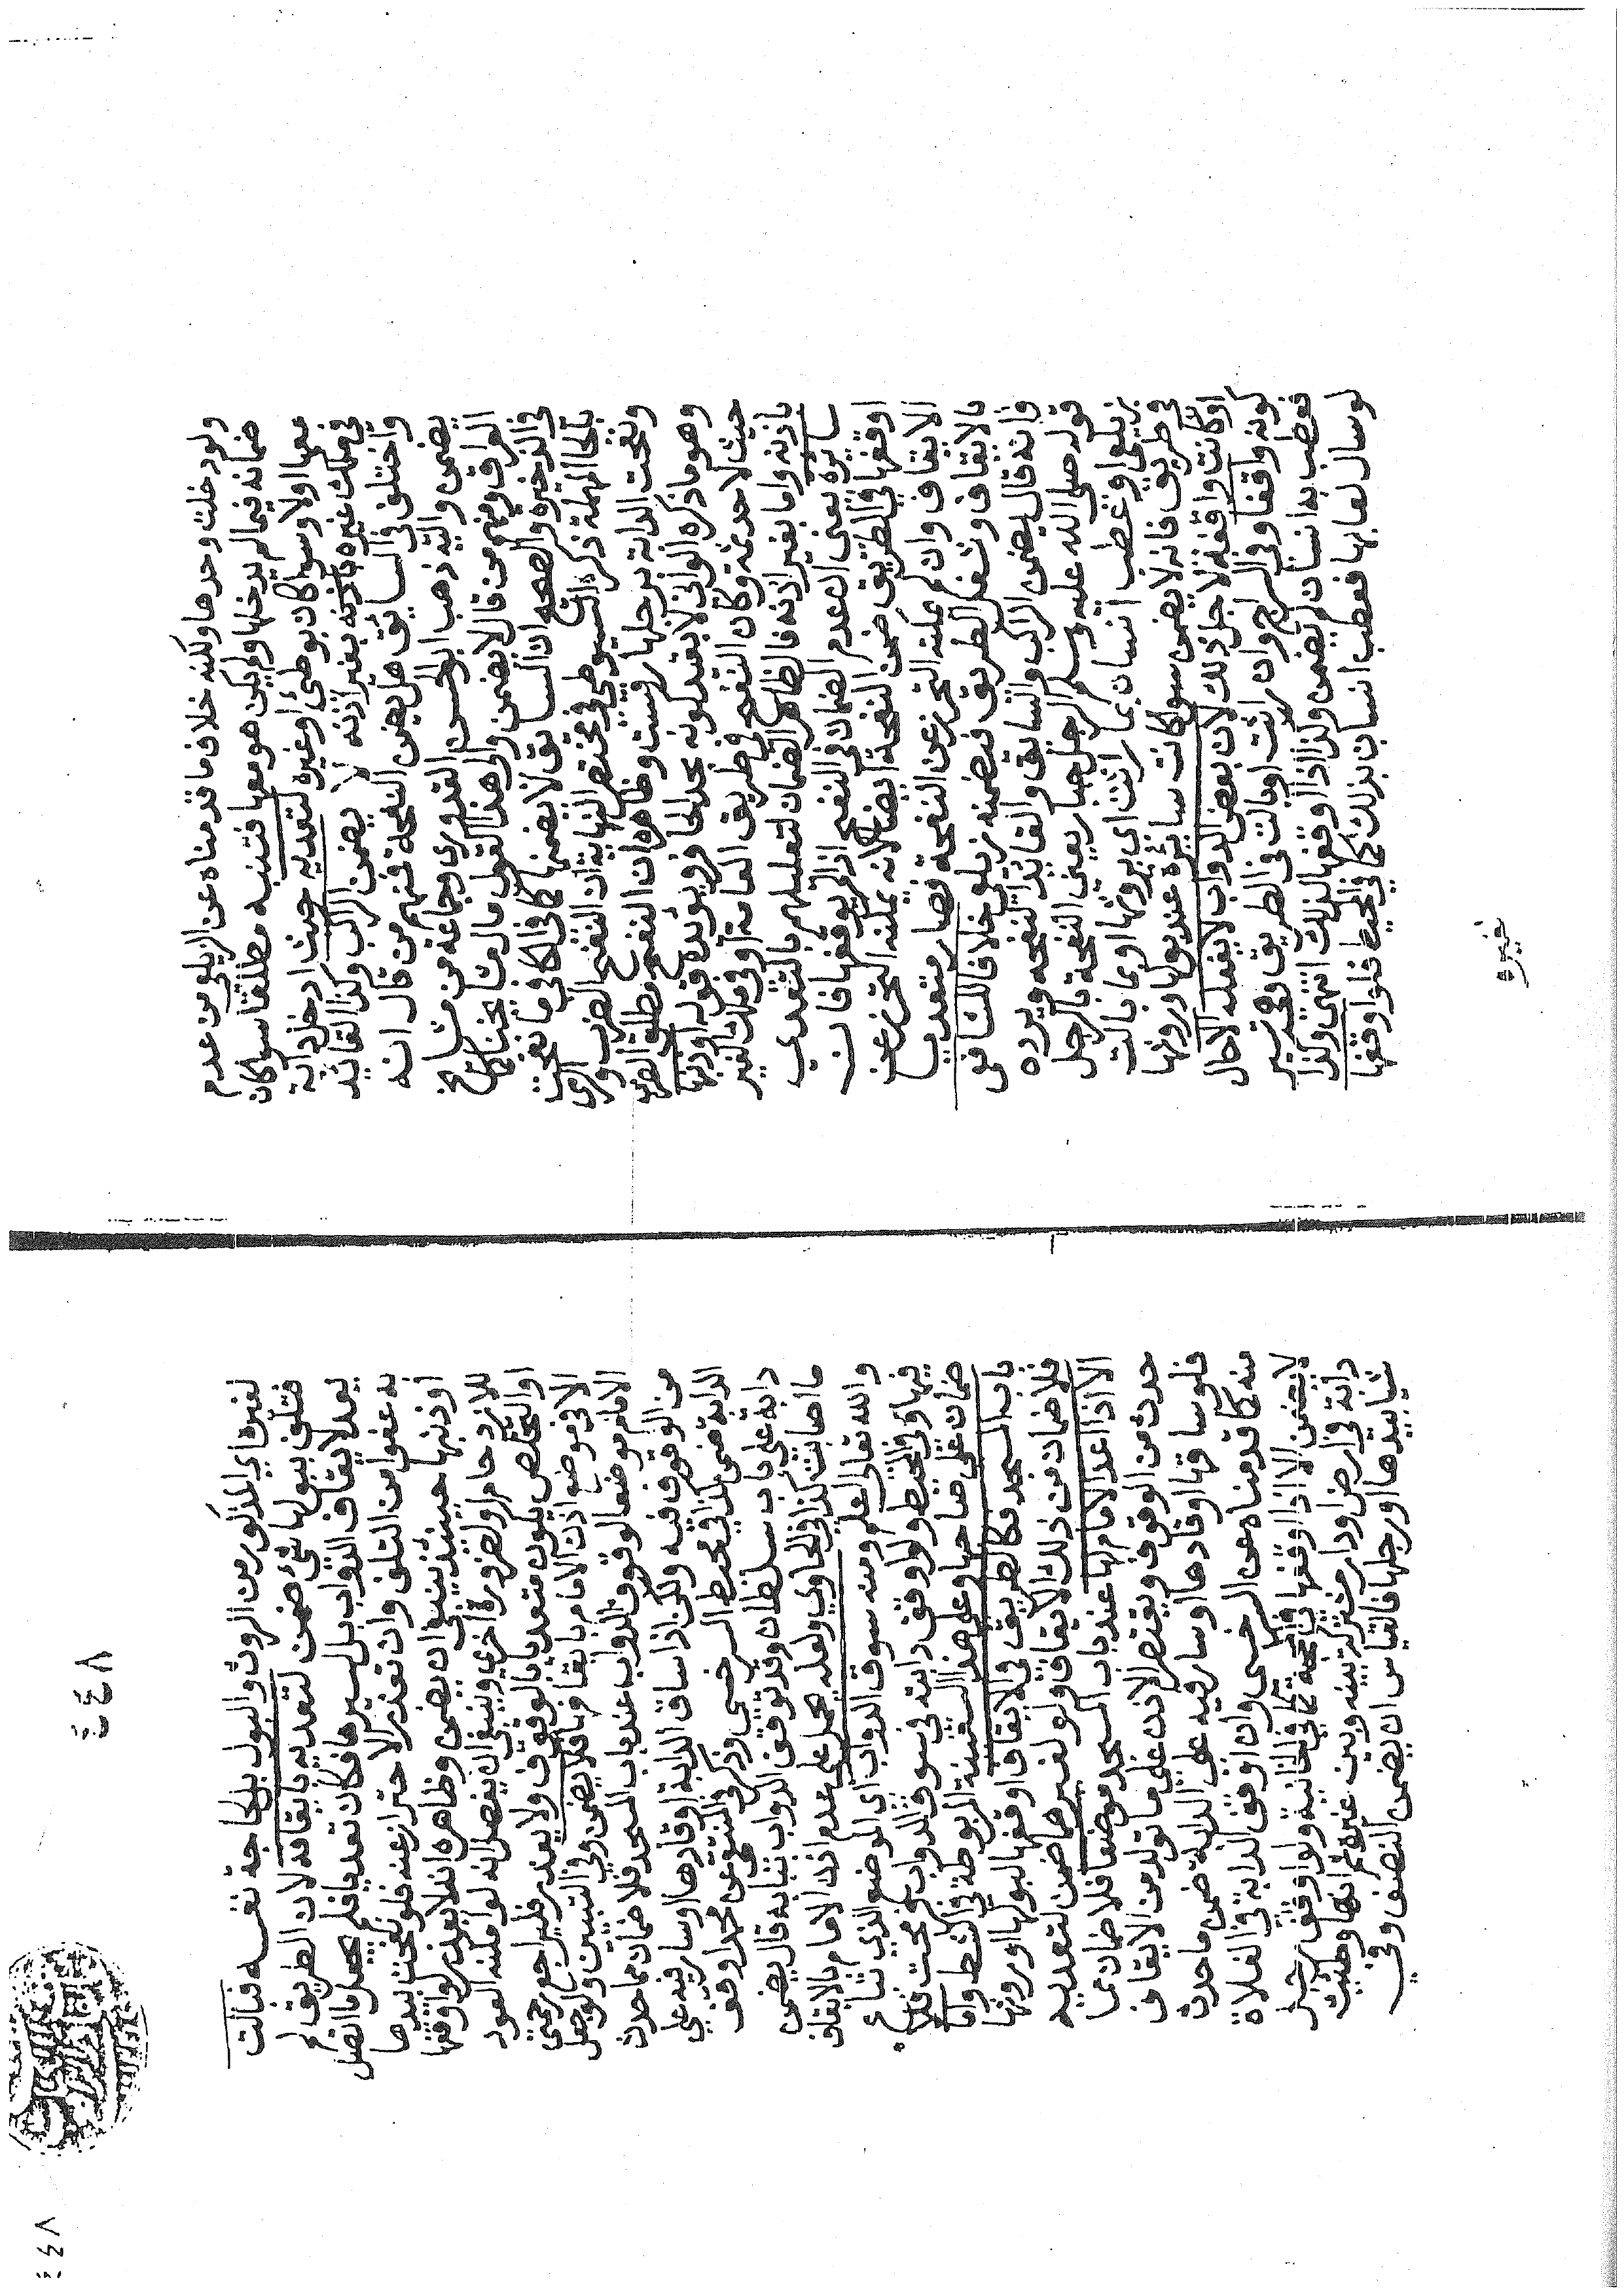 ولو دخلت وحدها ولكنه خلاف ما قدمناه عن الزيلعي من عدم
ضمانه فيما لم يدخلها ولم يكن هو معها فتنبه مطلقا سوا كان
معها اولا وسوا كان بوطئ او غيره لتعديه حيث ادخل دابة
في ملك غيره بغير اذنه لا يضمن الراكب وكذا القايد
واختلف في السائق هل يضمن النفحة فمنهم من قال انه
يضمن واليه ذهب ابو الحسن القدوري وجماعة من مشايخ
العراق ومنهم من قال لا يضمن والى هذا القول مال مشايخنا كما
في الذخيرة والصحيح ان السايق لا يضمنها كما في الكافي ما نفحت
بالحا المهملة ذكر السيوطي في مختصر النهاية ان النفح الضرب والرمي
ونفحت الدابة برجلها رفست وظاهره ان النفح مطلق الضرب
وهو ما ذكره الواني لا بقيد كونه بحد الحافر ويؤيده قوله او ذنبها
حيث لا حد ثمة وكان النفح في طريق العامة او في ملك الغير
باذنه واما بغير اذنه فالظاهر الضمان لتعليلهم بالتعدي
سايره يعني ان عدم الضمان في النفح اذا لم يوقفها فان
اوقفها في الطريق ضمن النفحة ايضا لانه يمكنه التحرز عن
الايقاف وان لم يمكنه التحرز عن النفحة فصار متعديا
بالايقاف وشغل الطريق فيضمنه زيلعي خلافا للشافعي
فانه قال يضمن الراكب والسايق والقايد النفحه ويرده
قوله صلى الله عليه وسلم الرجل جبار يعني النفحة بالرجل
زيلعي او عطب انسان بما راثت اي بروثها او بما بالت
في طريق فانه لا يضمن سوا كانت سايرة عند بولها وروثها
او كانت واقفة لاجل ذلك لان بعض الدواب لا يفعله الا حال
كونه واقفا وفي السراج وان راثت او بالت في الطريق وهي تسير
فعطب به انسان لم يضمن وكذا اذا اوقفها لذلك انتهى وكذا
لو سال لعابها فعطب انسان بذلك كما في المحيط فلو اوقفها
لغيره
٤٤٨
لغيره اي المذكور من الروث والبول بل لحاجة نفسه فبالت
فتلف ببولها شئ ضمن لتعديه بايقافه لان الطريق لم
يعد لايقاف الدواب بل لسيرها فكان تعديا فلم يجعل ما اتصل
به عفوا من التلف وان تعذر الاحتراز عنه فلو نفحت بيدها
او ذنبها حينئذ ينبغي ان يضمن وظاهره انه لا يعذر لو اوقفها
للازدحام او لضرورة اخرى وينبغي ان يفصل انه لو امكنه العود
او التخلص يكون متعديا بالوقوف والا يعذر فليراجع رحمتي
الا في موضع اذن الامام بايقافها فلا يضمن وفي التبيين ولو جعل
الامام موضعا لوقوف الدواب عند باب المسجد فلا ضمان مما حدث
من الوقوف فيه ولكن اذا ساق الدابة او قادها او سار فيه على
الدابة ضمن كذا في محيط السرخسي وذكر في المنتقى عن محمد اوقف
دابة على باب سلطان وقد توقف الدواب ببابه قال يضمن
ما اصابت كذا في الحاوي ولعله يحمل على عدم اذن الامام بالايقاف
والله تعالى اعلم ومنه سوق الدواب اي الموضع الذي تباع
فيها وفي المحيط ولو اوقف دابته في سوق الدواب فرمحت فلا
ضمان على صاحبها وعلى هذا السفينة المربوطة في الشط واما
باب المسجد فكالطريق في الايقاف او قفها لبولها او روثها
فلا ضمان من ذلك الايقاف ولو لغيرهما ضمن لتعديه
الا اذا اعد الامام لها عند باب المسجد موضعا فلا ضمان بما
حدث من الوقوف ويقتصر الاذن على ما تولد من الايقاف
فلو ساقها او قادها او سار فيه على الدابة ضمن ما حدث
منه كما قدمناه عن السرخسي وان اوقف الدابة في الفلاة
لا يضمن الا اذا اوقفها في المحجة كما في الخانية ولو اوقف رجل
دابة في ارض او دار مشتركة بينه وبين غيره ثم انها وطئت
شيا بيدها او رجلها فالقياس ان يضمن النصف وفي
٤٤٨